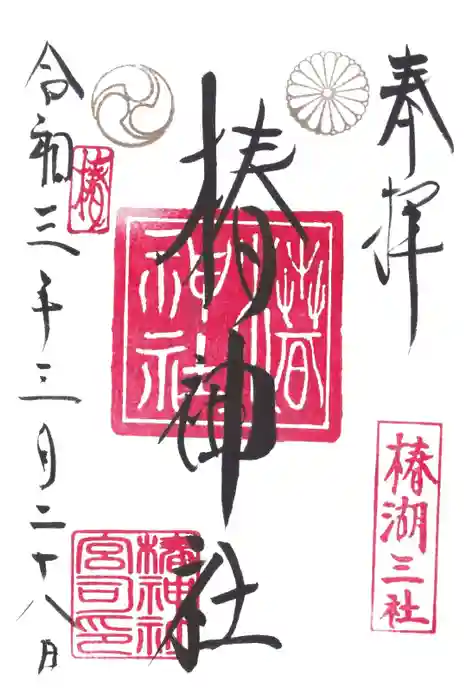 奉拝
椿湖三社
椿神社
令和三年三月二十八日
椿
椿神社
宮司印